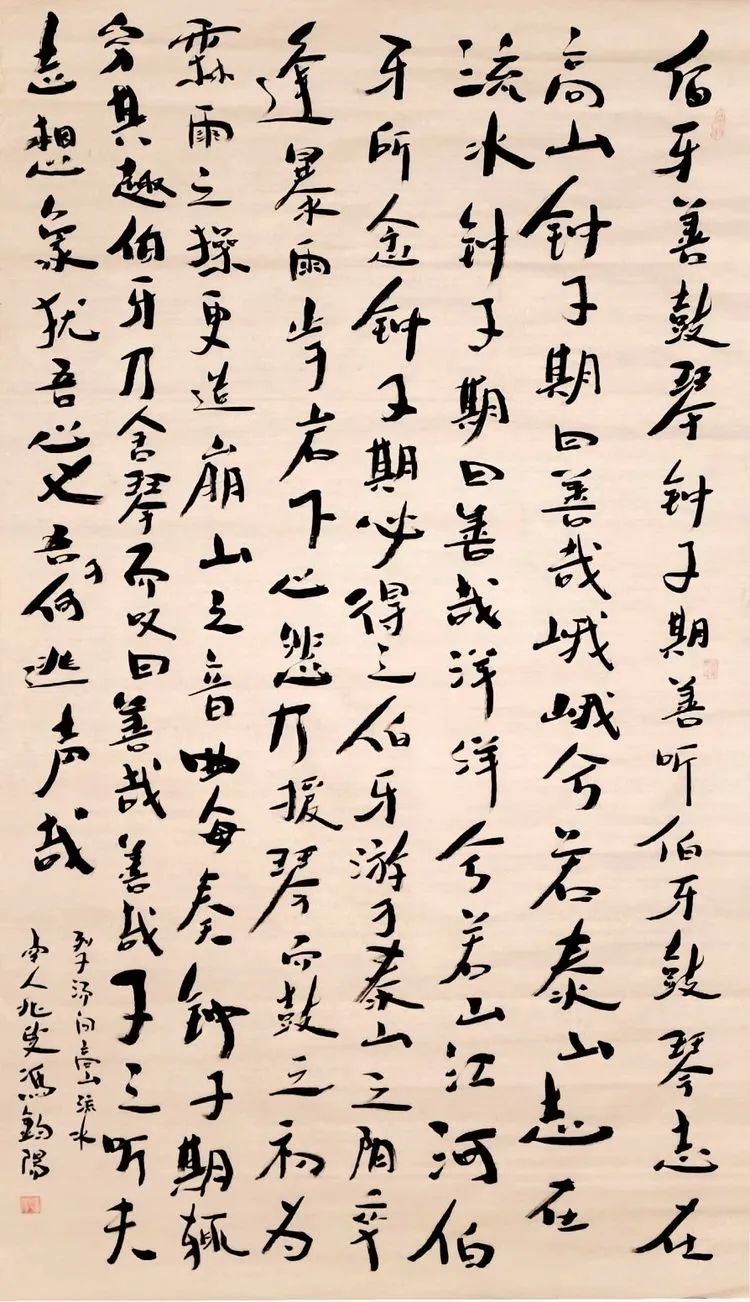 伯牙善鼓琴钟子期善听伯牙鼓琴志在
高山钟子期曰善哉峨峨兮若泰山志在
流水钟子期曰善哉洋洋兮若山江河伯
牙所念钟子期必得之伯牙游于泰山之阴卒
逢暴雨止于岩下心悲乃援琴而鼓之初为
霖雨之操更造崩山之音曲每奏钟子期辄
穷其趣伯牙乃舍琴而叹曰善哉善哉子之听夫
志想象犹吾心也吾于何逃声哉
列子汤问高山流水
南人兆叟冯